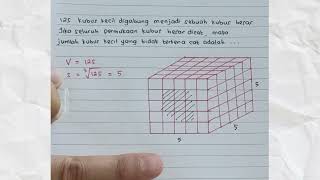 125 kubus kecil digabung menjadi sebuah kubus besar.
Jika seluruh permukaan kubus besar dicat, maka
jumlah kubus kecil yang tidak terkena cat adalah ...
V = 125
s = ∛125 = 5
5
5